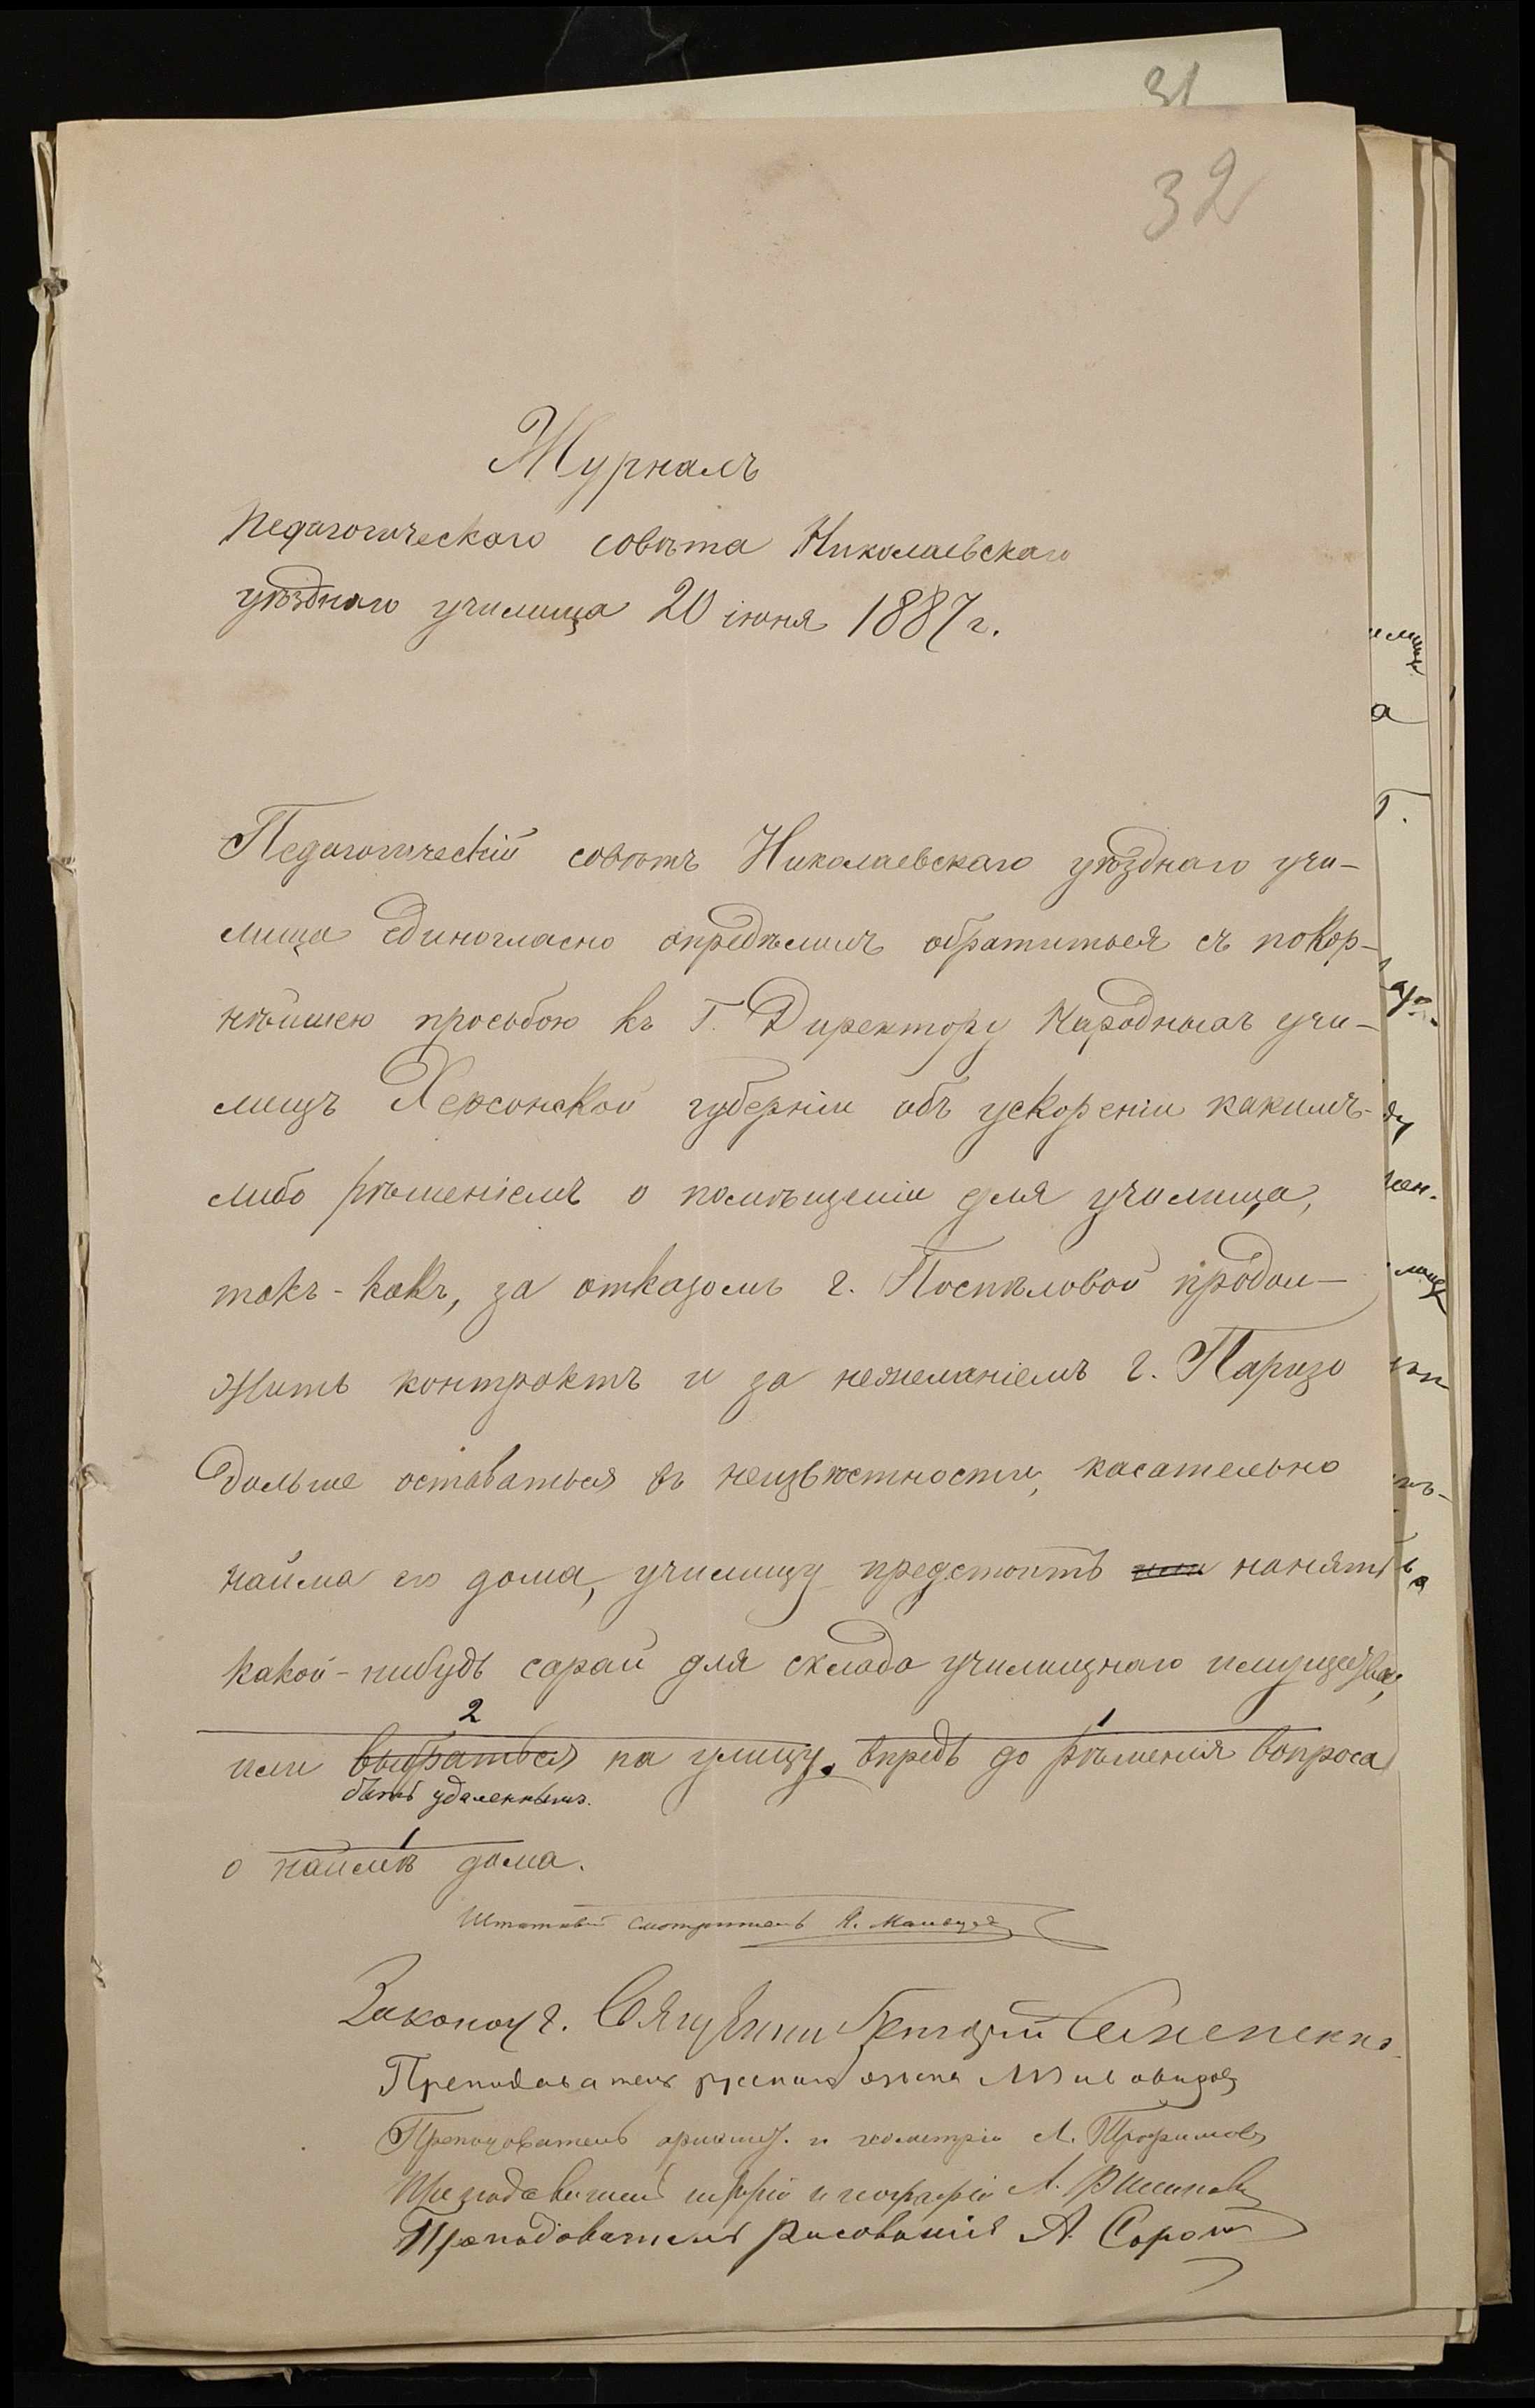 31
32
Журналъ
Педагогическаго совѣта Николаевскаго
уѣзднаго училища 20 іюня 1887 г.
Педагогическій совѣтъ Николаевскаго уѣзднаго учи-
лища единогласно опредѣлилъ обратиться съ покор-
нѣйшею просьбою къ Г. Директору Народныхъ учи-
лищъ Херсонской губерніи объ ускореніи какимъ-
либо рѣшеніемъ о помѣщеніи для училища,
такъ-какъ, за отказомъ г. Поспѣловой продол-
жить контрактъ и за нежеланіемъ г. Паризо
дольше оставаться въ неизвѣстности, касательно
найма его дома, училищу предстоитъ или нанять
какой-нибудь сарай для склада училищнаго имущества,
2 1
или выбраться на улицу. впредь до рѣшенія вопроса
быть удаленнымъ.
1
о наймѣ дома.
Штатный смотритель А.
Законоуч. Священникъ
Преподаватель русскаго языка
Преподаватель ариѳмет. и геометріи Л. Трофимовъ
Преподаватель исторіи и географіи А.
Преподаватель рисованія А.